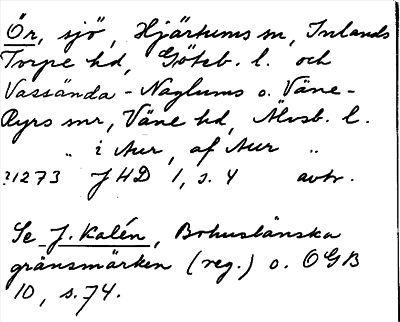 Ör, sjö, Hjärtums sn, Inlands
Torpe hd, Göteb. l. och
Vassända-Naglums o. Väne-
Ryrs snr, Väne hd, Älvsb. l.
" i Aur, af Aur "
?1273 JHD 1, s. 4 avtr.
Se J. Kalén, Bohuslänska
gränsmärken (reg.) o. OGB
10, s. 74.